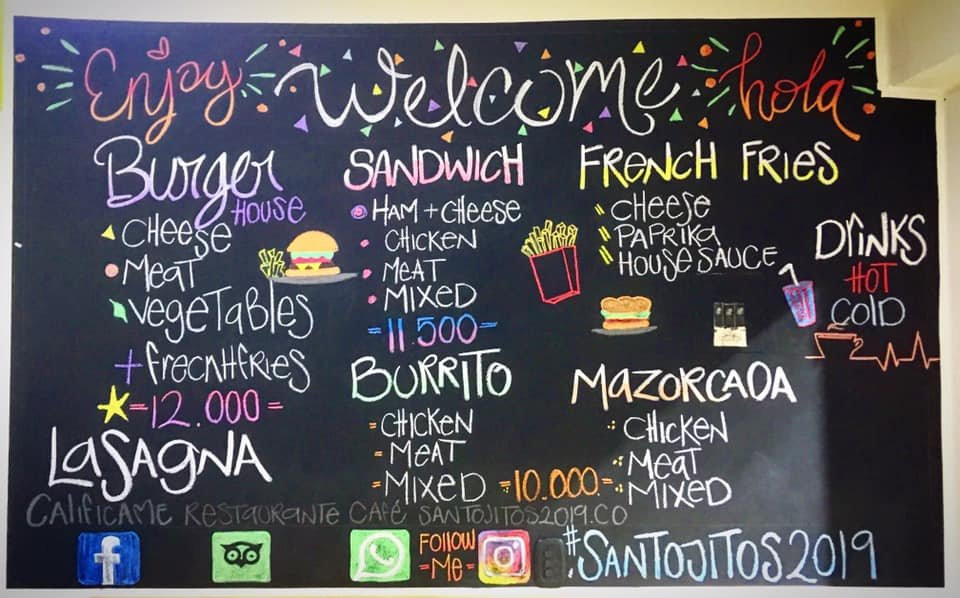 Enjoy Welcome hola
Burger
HOUSE
CHEESE
MEAT
VegeTABles
+ frecnHfries
=12.000=
LASAGNA
SANDWICH
HAM + CHEESE
CHICKEN
MEAT
MIXED
=11.500=
BURRITO
=CHICKEN
=MEAT
=MIXED =10.000=
FRENCH FRIES
CHEESE
PAPRIKA
HOUSE SAUCE
MAZORCADA
CHICKEN
MEAT
MIXED
DRINKS
HOT
COLD
CALIFICAME RESTAURANTE CAFÉ SANTOJITOS2019.CO
f
FOLLOW
=ME=
#SANTOJITOS2019